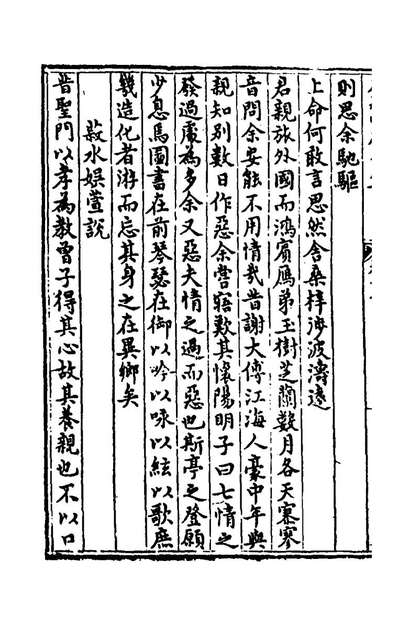 則思余馳驅
上命何敢言思然舍桑梓涉波濤遠
君親旅外國而鴻賓鴈弟玉樹芝蘭數月各天寒寥
音問余安能不用情哉昔謝大傅江海人豪中年與
親知別數日作惡余嘗竊歎其懷陽明子曰七情之
發過處為多余又惡夫情之過而惡也斯亭之登願
少息焉圖書在前琴瑟在御以吟以咏以絃以歌庶
幾造化者游而忘其身之在異鄉矣
菽水娛萱說
昔聖門以孝為教曾子得其心故其養親也不以口